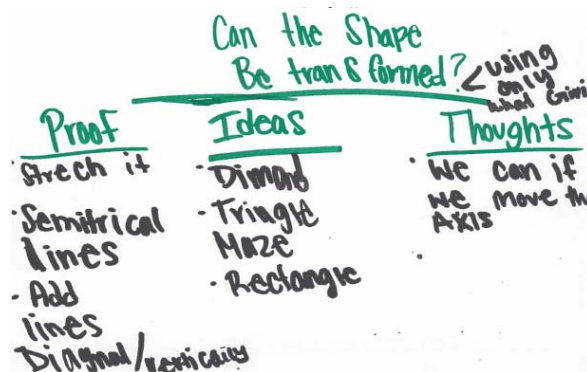 Can the Shape
Be transformed?
using
only
what
Proof
Strech it
Semitrical
lines
Add
lines
Diagnal/vertically
Ideas
Dimond
Tringle
Maze
Rectangle
Thoughts
We can if
we move the
AXIS